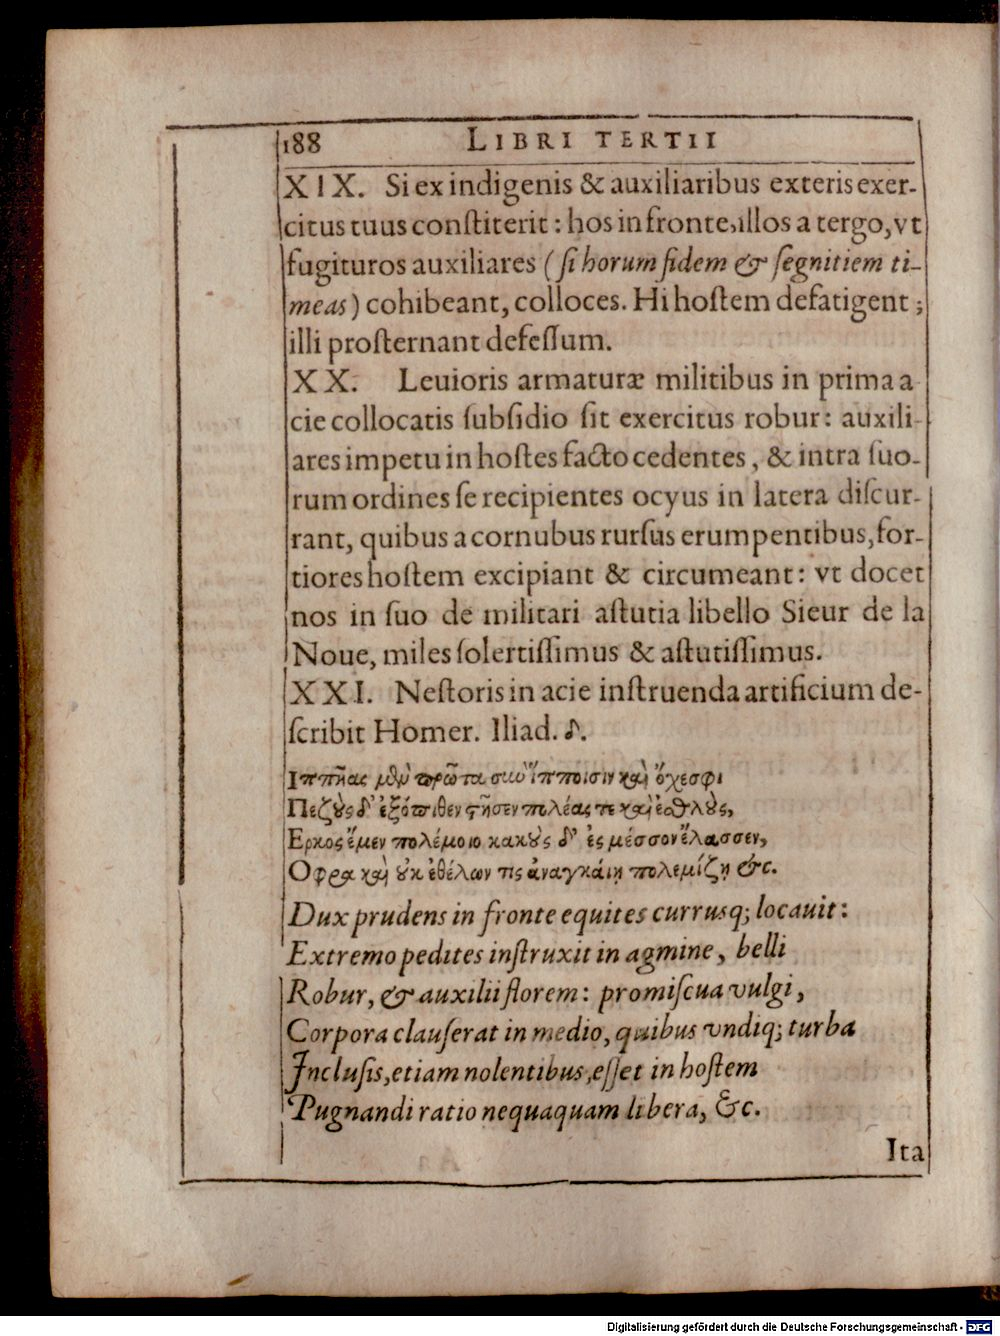 188 LIBRI TERTII
XIX. Si ex indigenis & auxiliaribus exteris exer-
citus tuus conſtiterit: hos in fronte, illos a tergo, vt
fugituros auxiliares (ſi horum fidem & ſegnitiem ti-
meas) cohibeant, colloces. Hi hoſtem defatigent;
illi proſternant defeſſum.
XX. Leuioris armaturæ militibus in prima a
cie collocatis ſubſidio ſit exercitus robur: auxili-
ares impetu in hoſtes facto cedentes, & intra ſuo-
rum ordines ſe recipientes ocyus in latera diſcur-
rant, quibus a cornubus rurſus erumpentibus, for-
tiores hoſtem excipiant & circumeant: vt docet
nos in ſuo de militari aſtutia libello Sieur de la
Noue, miles ſolertiſſimus & aſtutiſſimus.
XXI. Neſtoris in acie inſtruenda artificium de-
ſcribit Homer. Iliad. δ.
Ιππῆας μὲν πρῶτα σὺν ἵπποισιν καὶ ὄχεσφι
Πεζοὺς δ' ἐξόπιθεν στῆσεν πολέας τε καὶ ἐσθλοὺς,
Ερκος ἔμεν πολέμοιο κακοὺς δ' ἐς μέσσον ἔλασσεν,
Οφρα καὶ οὐκ ἐθέλων τις ἀναγκάιῃ πολεμίζῃ &c.
Dux prudens in fronte equites currusq; locauit:
Extremo pedites inſtruxit in agmine, belli
Robur, & auxilii florem: promiſcua vulgi,
Corpora clauſerat in medio, quibus vndiq; turba
Incluſis, etiam nolentibus, eſſet in hoſtem
Pugnandi ratio nequaquam libera, &c.
Ita
Digitalisierung gefördert durch die Deutsche Forschungsgemeinschaft - DFG